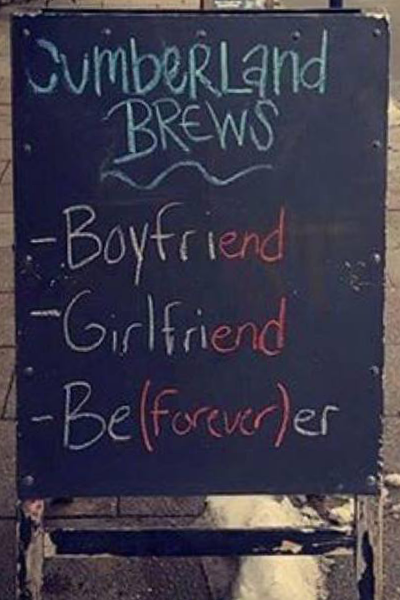 Cumberland
BREWS
-Boyfriend
-Girlfriend
-Be(forever)er